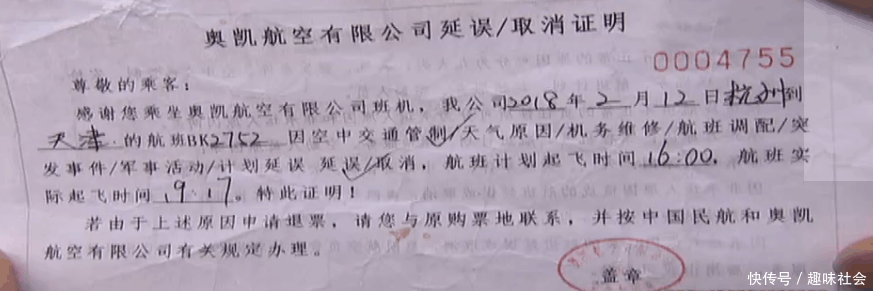 奥凯航空有限公司延误/取消证明
0004755
尊敬的乘客：
感谢您乘坐奥凯航空有限公司班机，我公司2018年2月12日杭州到
天津的航班BK2752因空中交通管制/天气原因/机务维修/航班调配/突
发事件/军事活动/计划延误 延误/取消，航班计划起飞时间16:00，航班实
际起飞时间19:17。特此证明！
若由于上述原因申请退票，请您与原购票地联系，并按中国民航和奥凯
航空有限公司有关规定办理。
盖章
快传号/趣味社会